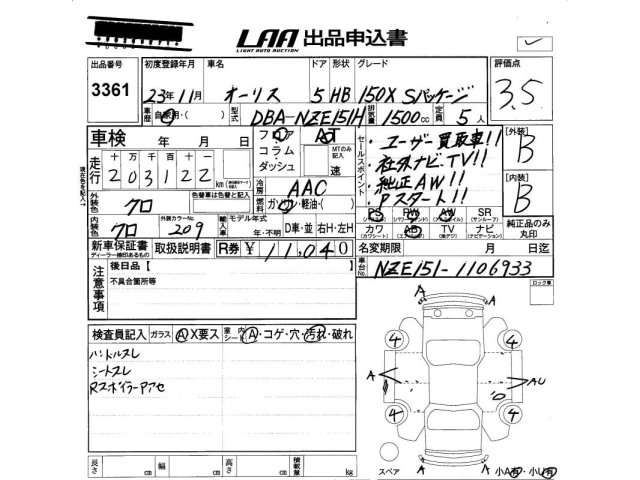 LAA 出品申込書
LIGHT AUTO AUCTION
出品番号 3361
初度登録年月 23年11月
車名 オーリス
ドア 5 形状 HB グレード 150X Sパッケージ
評価点 3.5
車歴 自家用・( )
型式 DBA-NZE151H
排気量 1500cc
定員 5人
車検 年 月 日
フロア コラム ダッシュ
AT
MTのみ記入 速
セールスポイント
・ユーザー買取車!!
・社外ナビ、TV!!
・純正AW!!
・Pスタート!!
[外装] B
[内装] B
走行 十万千百十
203122 km
冷房 AAC
燃料 ガソリン・軽油・( )
外装色 クロ
色替車は色替と記入
内装色 クロ
外装カラーNo. 209
輸入車 モデル年式 年・不明
D車・並 右H・左H
PS PW AW SR
カワ AB TV ナビ
純正品のみ丸印
新車保証書 取扱説明書
ディーラー捺印あるもの
R券 ¥ 11,040
名変期限 月 日迄
車台No. NZE151-1106933
注意事項
後日品【
不具合箇所等
ロック車
検査員記入 ガラス A X要ス
室内 シート A・コゲ・穴・汚れ・破れ
ハンドルスレ
シートスレ
Rスポイラーアアセ
A A
4 4
A AU
4 4
A A
スペア
小A有・小U有
長さ cm 幅 cm 高さ cm 積載量 kg